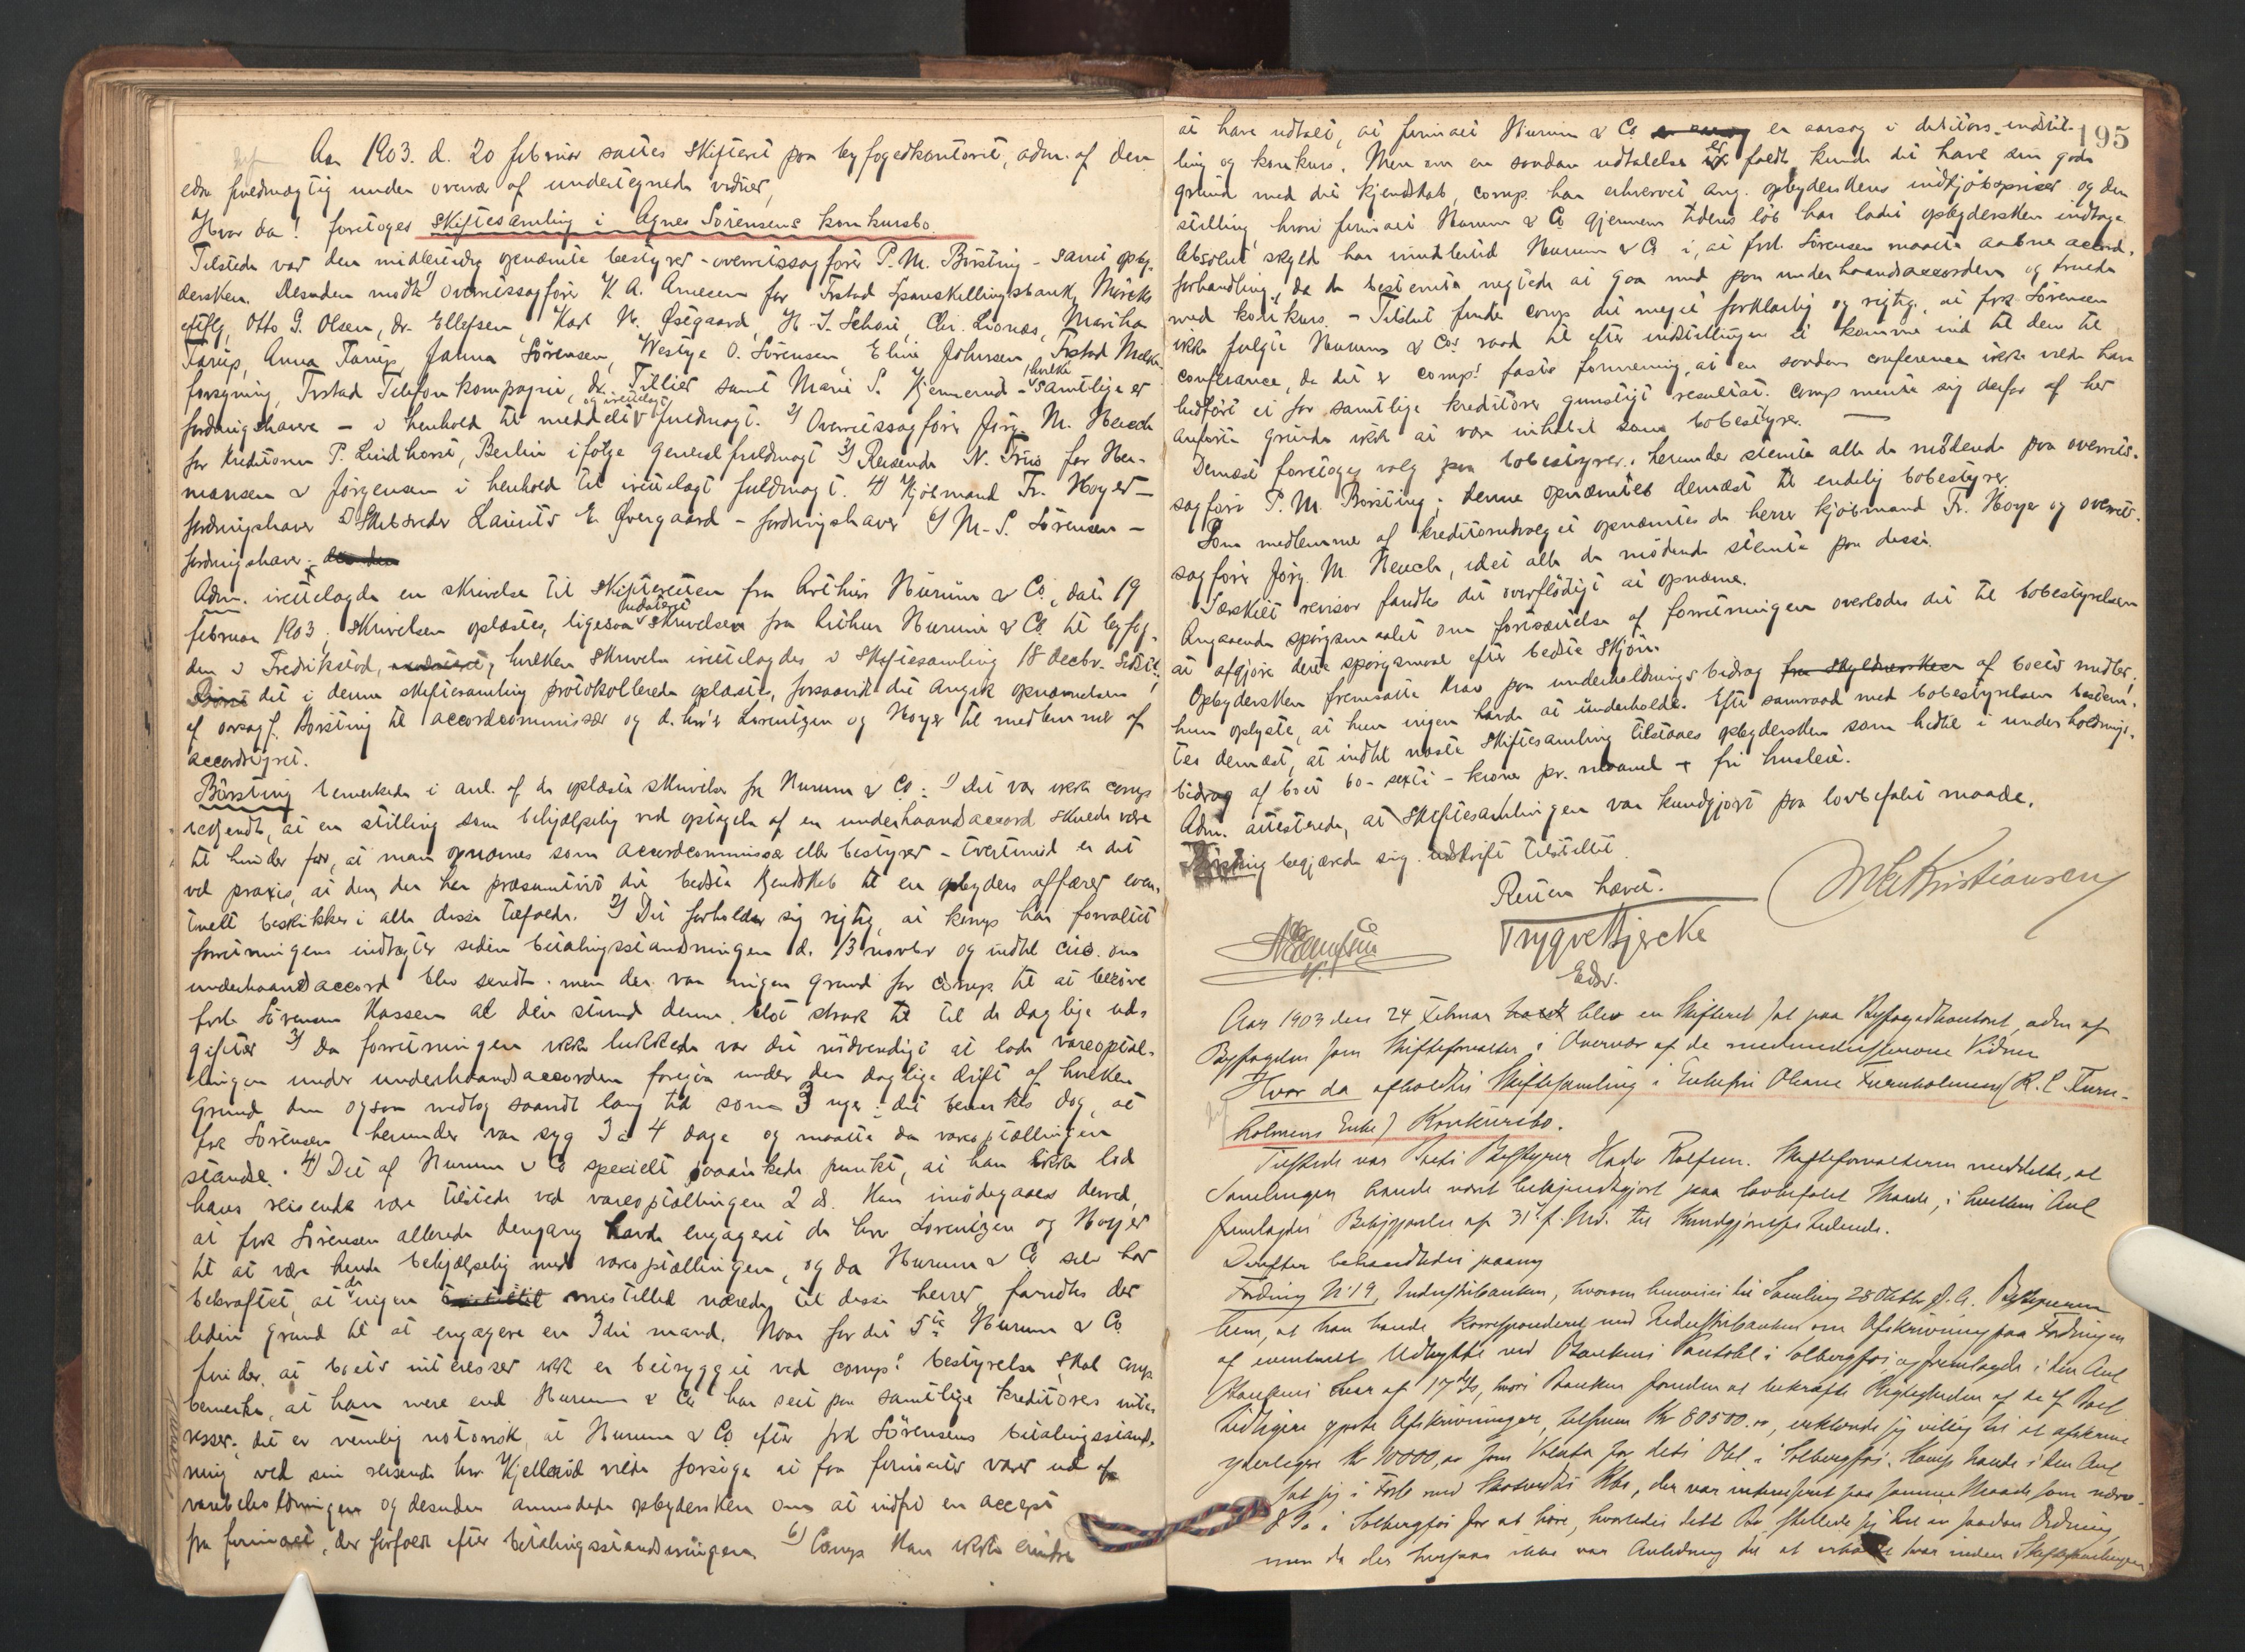 Aar 1903. d. 20 februar sattes Skifteret paa byfogedkontoret, adm. af den
edsv. fuldmægtig under overvær af undertegnede vidner,
Hvor da! foretoges Skiftesamling i Agnes Sörensens konkursbo.
Tilstede var den midlertidig opnævnte bestyrer - overretssagförer P. M. Börsting - samt opby-
dersken. Desuden mödte 1) Overretssagförer K. A. Arnesen for Frstad Spareskillingsbank, Mörchs
eftflg, Otto G. Olsen, dr. Ellefsen, Karl N. Østgaard, H. J. Schou, Chr. Lionæs, Martha
Tarup, Anna Tarup, Janna Sörensen, Westye O. Sörensen, Eline Johnsen, Frstad Melke-
forsyning, Frstad Telefonkompagni, dr. Tillier samt Marie S. Kjennerud - hvilke samtlige er
fordringshavere - i henhold til meddelt og irettelagt fuldmagt. 2) Overretssagförer Jörg. M. Heuch
for kreditoren P. Lindhorst, Berlin ifölge generalfuldmagt 3) Reisende N. Friis for Her-
mansen & Jörgensen i henhold til irettelagt fuldmagt. 4) Kjöbmand Fr. Hoyer -
fordringshaver 5) Skibsreder Laurits E. Øvergaard - fordringshaver 6) M. S. Sörensen -
fordringshaver.
Adm. irettelagde en skrivelse til Skifteretten fra Arthur Nurum & Co, dat. 19
februar 1903; Skrivelsen oplæstes, ligesaa udateret Skrivelse fra Arthur Nurum & Co. til byfog-
den i Fredrikstad, hvilken Skrivelse irettelagdes i Skiftesamling 18 decbr. Sidstl.,
det i denne skiftesamling protokollerede oplæstes, forsaavidt det angik opnævnelsen
af ovrsagf. Börsting til accordcommissær og d. hrr'er Lorentzen og Hoyer til medlemmer af
accordstyret.
Börsting bemerkede i anl. af de oplæste skrivelser fra Nurum & Co: 1) Det var ikke comp.
bekjendt, at en stilling som behjælpelig ved optagelse af en underhaandsaccord skulde være
til hinder for, at man opnævnes som accordcommissær eller bestyrer - tvertimod er det
vel praxis, at den, der har præsumtivt det bedste kjendskab til en opbyders affærer even-
tuelt beskikkes i alle disse tilfælde. 2) Det forholder sig rigtig, at komp. har forvaltet
forretningens indtægter siden betalingsstandsningen d. 13 novbr og indtil circ. om
underhaandsaccord blev sendt. men der var ingen grund for comp. til at beröve
frk. Sörensen kassen al den stund denne slet strak til til de daglige ud-
gifter 3) Da forretningen ikke lukkedes var det nödvendigt at lade vareoptæl-
lingen under underhaandsaccorden foregaa under den daglige drift af hvilken
grund den ogsaa medtog saavidt lang tid som 3 uger; det bemerkes dog, at
frk Sörensen herunder var syg 3 a 4 dage og maatte da vareoptællingen
standse. 4) Det af Nurum & Co specielt paaankede punkt, at han ikke lod
hans reisende være tilstede ved vareoptællingen 2 d. Han imödegaaes derved,
at frk Sörensen allerede dengang havde engageret de hrr Lorentzen og Hoyer
til at være hende behjælpelig med vareoptællingen, og da Nurum & Co selv har
bekræftet, at der ingen mistillid næredes til disse herrer, fandtes der
liden grund til at engagere en 3die mand. Naar for det 5te Nurum & Co
finder, at boets interesser ikke er betrygget ved comp's bestyrelse, skal comp.
bemerke, at han mere end Nurum & Co har seet paa samtlige kreditorers inte-
resser; det er nemlig notorisk, at Nurum & Co efter frk Sörensens betalingsstands-
ning ved sin reisende hrr Kjellerød vilde forsöge at faa firmaets varer ud af
varebeholdningen og desuden anmodede opbydersken om at indfri en accept
fra firmaet, der forfaldt efter betalingsstandsningen 6) Comp. kan ikke erindre
195
at have udtalt, at firmaet Nurum & Co er aarsag i debitors indstil-
ling og konkurs. Men om en saadan udtalelse er faldt, kunde det have sin gode
grund med det kjendskab, comp. har erhvervet ang. opbyderskens indkjöbspriser og den
stilling, hvori firmaet Nurum & Co gjennem tidens löb har ladet opbydersken indtage.
Absolut skyld har imidlertid Nurum & Co i, at frk. Sörensen maatte aabne accord-
forhandling, da de bestemte negtede at gaa med paa underhaandsaccorden og truede
med konkurs. - Tilslut finder comp. det meget forklarlig og rigtig, at frk. Sörensen
ikke fulgte Nurum & Cos raad til efter indstillingen at komme ind til dem til
conferance, da det er comp's faste formening, at en saadan conference ikke vilde have
ledfört et for samtlige kreditorer gunstigt resultat. Comp. mente sig derfor af her
anförte grunde ikke at være inhabil som bobestyrer.
Dernæst foretoges valg paa bobestyrer; herunder stemte alle de mödende paa overrets-
sagförer P. M. Börsting; denne opnævntes dernæst til endelig bobestyrer.
Som medlemmer af kreditorudvalget opnævntes de herrer kjöbmand Fr. Hoyer og overrets-
sagförer Jörg. M. Heuch, idet alle de mödende stemte paa disse.
Særskilt revisor fandtes det overflödigt at opnævne.
Angaaende spörgsmaalet om fortsættelse af forretningen overlodes det til bobestyrelsen
at afgjöre dette spörgsmaal efter bedste skjön.
Opbydersken fremsatte krav paa underholdningsbidrag fra skyldnersken af boets midler;
hun oplyste, at hun ingen havde at underholde. Efter samraad med bobestyrelsen bestem-
tes dernæst, at indtil næste skiftesamling tilstaaes opbydersken som hidtil i underholdnings-
bidrag af boet 60 - sexti - kroner pr. maaned + fri husleie.
Adm. attesterede, at Skiftesamlingen var kundgjort paa lovbefalet maade.
Börsting begjærede sig udskrift tilstillet.
Retten hævet.
Trygve Bjercke
Edsv.
Kristiansen
Aar 1903 den 24 Februar blev en Skifteret sat paa Byfogedkontoret, adm af
Byfogden som Skifteforvalter i Overvær af de medunderskrevne Vidner
Hvor da afholdtes Skiftesamling i Enkefru Oliane Furuholmens (R. C. Furu-
holmens Enke) Konkursbo.
Tilstede var Boets Bestyrer Hadv Rolfsen. Skifteforvalteren meddelte, at
Samlingen havde været bekjendtgjort paa lovbefalet Maade, i hvilken Anl
fremlagdes Bekjgjørelse af 31' f. Md. til Kundgjörelsestidende.
Derefter behandledes paany
Fordring N: 19, Industribanken, hvorom henvises til Samling 28 Oktbr f. A. Bestyreren
bem, at han havde korresponderet med Industribanken om Afskrivning paa Fordringen
af eventuelt Udbytte ved Bankens Panteobl i Solbergfos og fremlagde i den Anl
Bankens Skr af 17 ds, hvori Banken foruden at bekræfte Rigtigheden af de af Boet
tidligere gjorte Afskrivninger, tilsammen Kr 80500.00, erklærede sig villig til at afskrive
yderligere Kr 10000,00 som Valuta for dets Obl. i Solbergfos. Komp havde i den Anl
sat sig i Forb med
i Solbergfos for at höre, hvorledes dette Bo stillede sig til en saadan Ordning
men da der